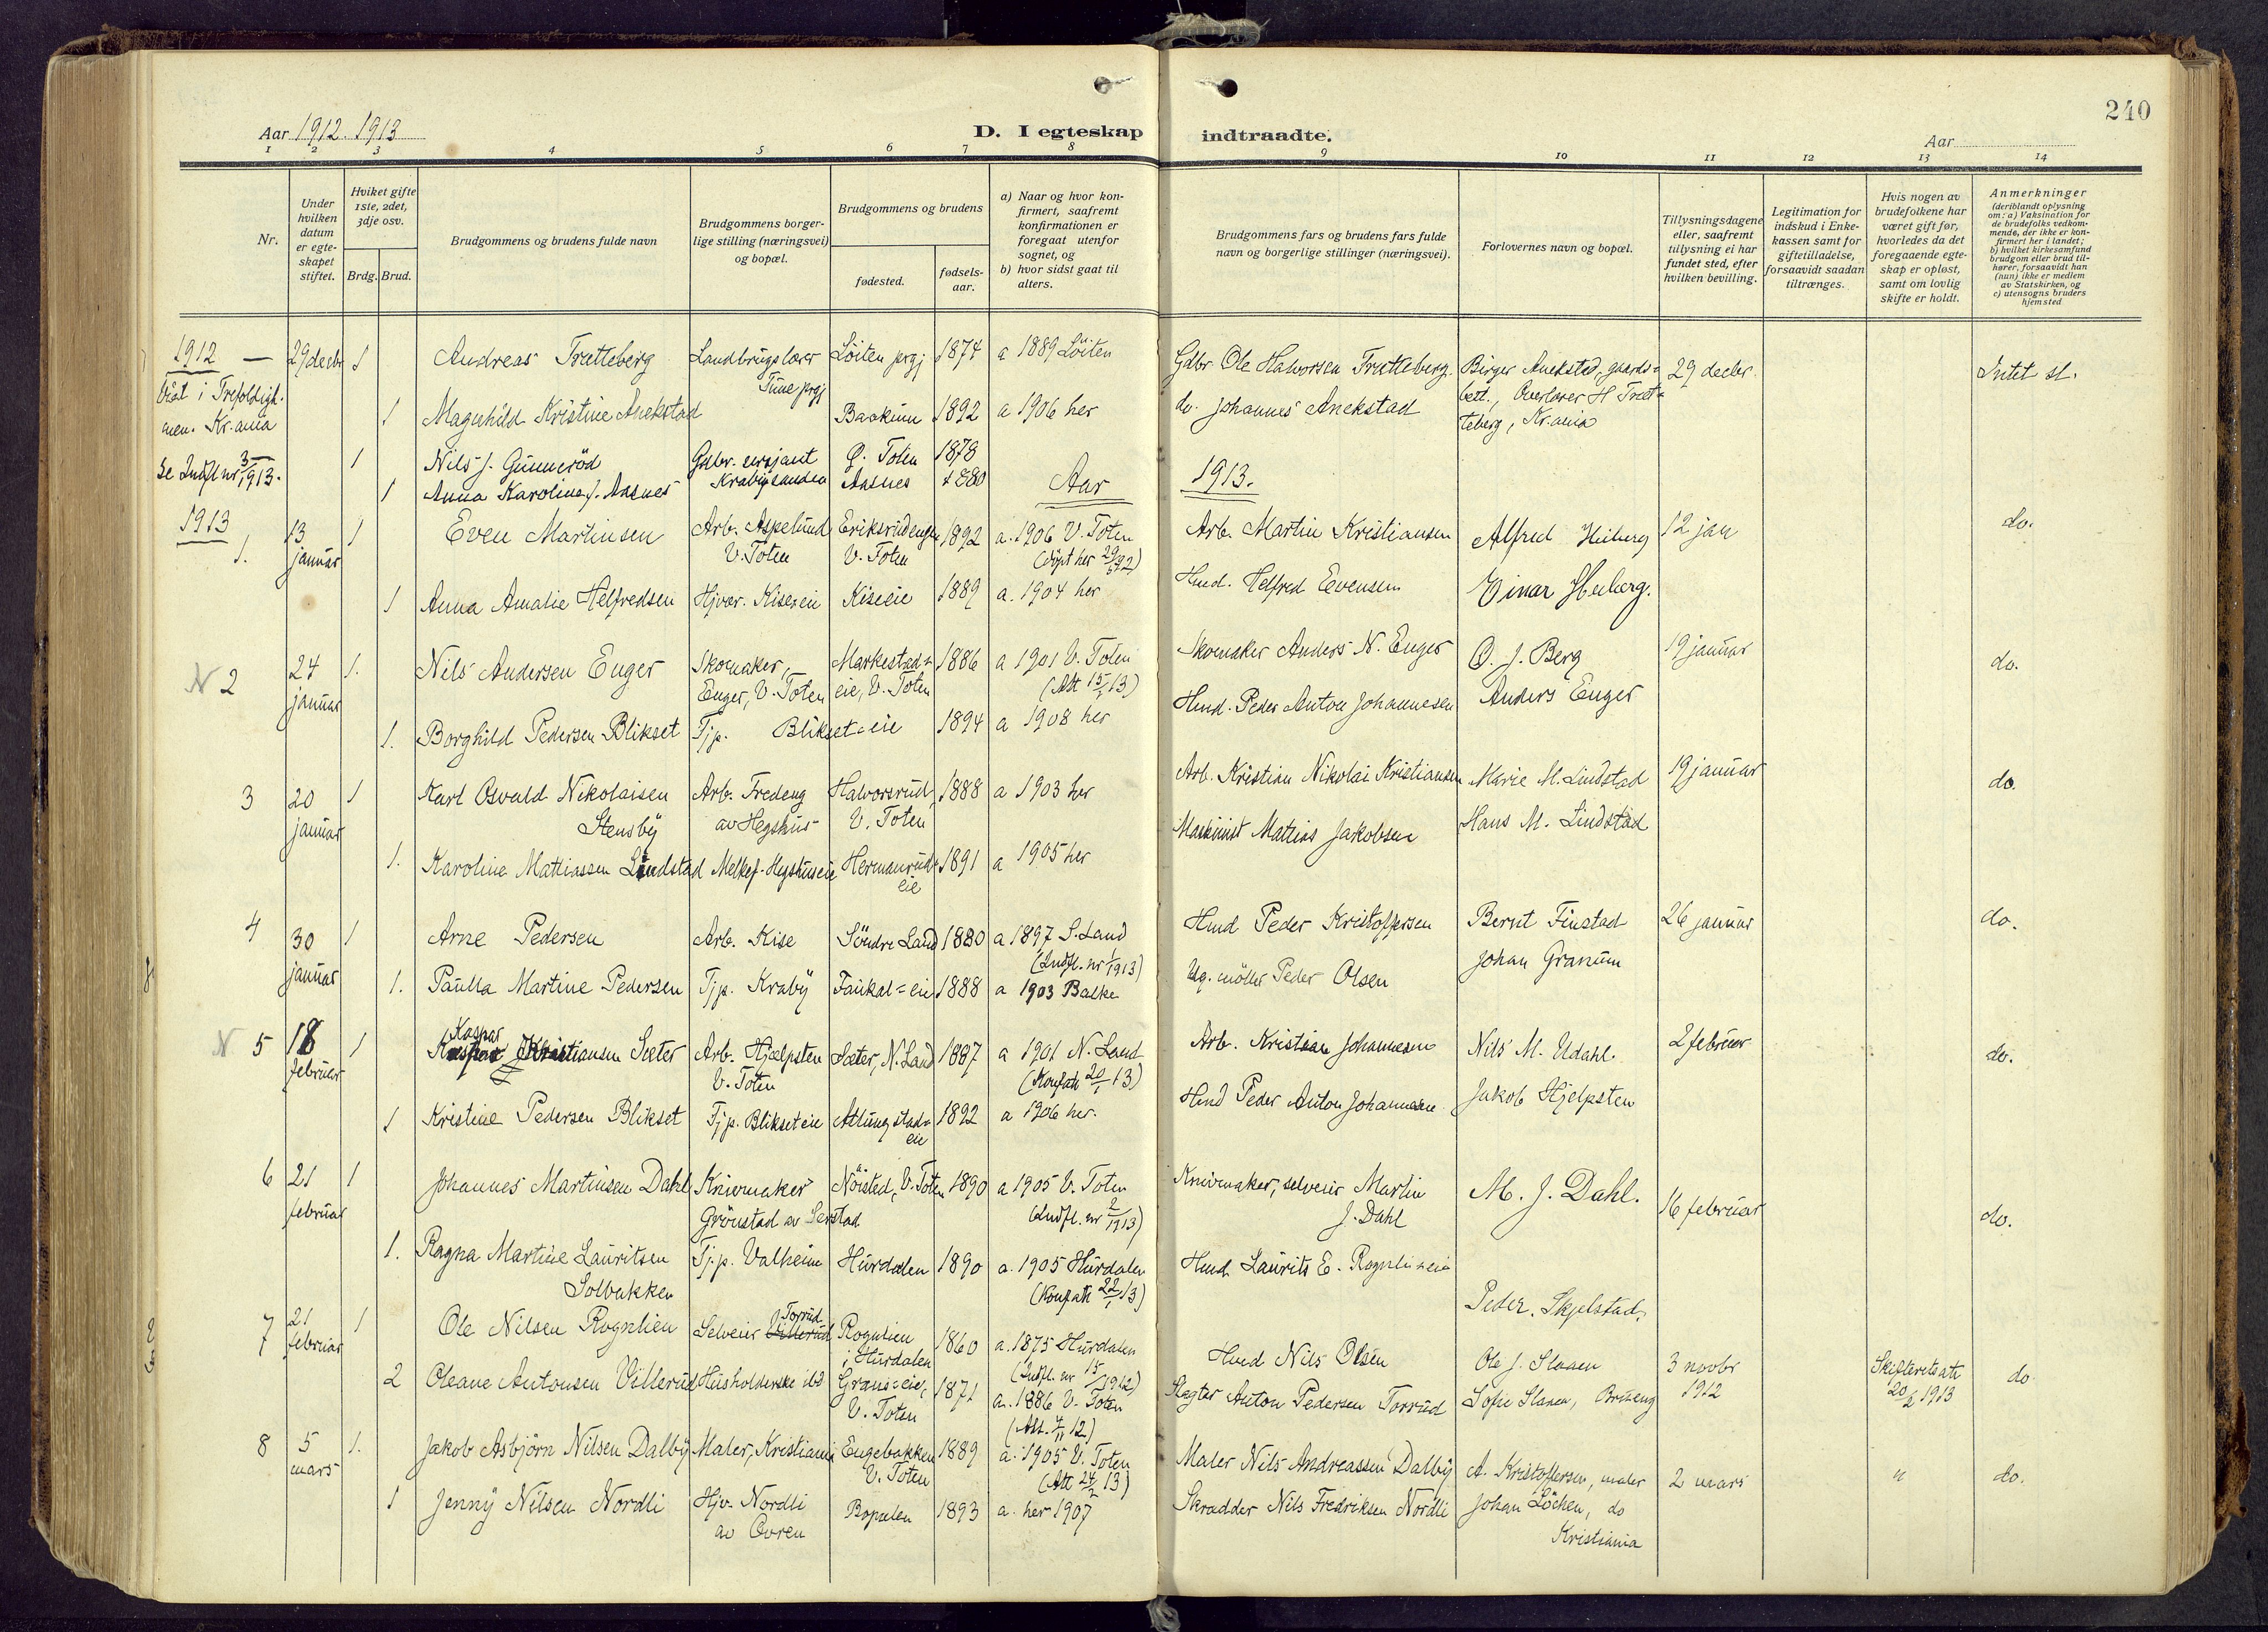 240
Aar 1912. 1913
D. I egteskap indtraadte.
Aar
1 2 3 4 5 6 7 8 9 10 11 12 13 14
Nr.
Under hvilken datum er egte-skapet stiftet.
Hviket gifte 1ste, 2det, 3dje osv.
Brdg. Brud.
Brudgommens og brudens fulde navn
Brudgommens borger-lige stilling (næringsvei) og bopæl.
Brudgommens og brudens
fødested.
fødsels-aar.
a) Naar og hvor kon-firmert, saafremt konfirmationen er foregaat utenfor sognet, og
b) hvor sidst gaat til alters.
Brudgommens fars og brudens fars fulde navn og borgerlige stillinger (næringsvei).
Forlovernes navn og bopæl.
Tillysningsdagene eller, saafremt tillysning ei har fundet sted, efter hvilken bevilling.
Legitimation for indskud i Enke-kassen samt for giftetilladelse, forsaavidt saadan tiltrænges.
Hvis nogen av brudefolkene har været gift før, hvorledes da det foregaaende egte-skap er opløst, samt om lovlig skifte er holdt.
Anmerkninger (deriblandt oplysning om: a) Vaksination for de brudefolks vedkom-mende, der ikke er kon-firmert her i landet; b) hvilket kirkesamfund brudgom eller brud til-hører, forsaavidt han (hun) ikke er medlem av Statskirken, og c) utensogns bruders hjemsted
1912 — 29 decbr 1 Andreas Trætteberg Landbrugslærer Tune prgj Löiten prgj 1874 a 1889 Löiten Gdbr Ole Halvorsen Trætteberg. Birger Anekstad, gaards- 29 decbr. Intet st.
Viet i Trefoldigh.
men. Kr.ania
1 Magnhild Kristine Anekstad 1892 a 1906 her do. Johannes Anekstad best., Overlærer H Træt-teberg, Kr.ania
Se Indfl nr 3/1913.
1 Nils J. Gunneröd Gdbr. sersjant Ö. Toten 1878
1 Anna Karoline J. Aasnes Krabysanden Aasnes 1880
Aar 1913.
1913
1. 13 januar 1 Even Martinsen Arb. Aspelund V. Toten Eriksrudengen V. Toten 1892 a. 1906 V. Toten (Döpt her 29/6 92) Arb. Martin Kristiansen Alfred Heiberg 12 jan do.
1 Anna Amalie Helfredsen Hjvær. Kiseeie Kiseeie 1889 a. 1904 her Hmd. Helfred Evensen Einar Heiberg.
N 2 24 januar 1. Nils Andersen Enger Skomaker, Enger, V. Toten Markestad-eie, V. Toten 1886 a 1901 V. Toten (Att 15/1 13) Skomaker Anders N. Enger O. J. Berg 19 januar do.
1. Borghild Pedersen Blikset Tjp. Blikset-eie 1894 a 1908 her Hmd. Peder Anton Johannesen Anders Enger
3 20 januar 1 Karl Osvald Nikolaisen Stensby Arb. Fredeng av Hegshus Halvorsrud, V. Toten 1888 a 1903 her Arb. Kristian Nikolai Kristiansen Marie M. Lindstad 19 januar do.
1. Karoline Mattiassen Lindstad Hegshuseie Hermanrud-eie 1891 a 1905 her Maskinist Mattias Jakobsen Hans M. Lindstad
4 30 januar 1 Arne Pedersen Arb. Kise Söndre Land 1880 a 1897 S. Land (Indfl. nr 1/1913) Hmd Peder Kristoffersen Bernt Finstad 26 januar do.
1. Paulla Martine Pedersen Tjp. Kraby Faukal-eie 1888 a 1903 Balke Peder Olsen Johan Granum
N 5 18 februar 1 Kaspar Kristiansen Sæter Arb. Hjælpsten V. Toten Sæter, N. Land 1887 a 1901 N. Land (Konfatt 20/1 13) Arb. Kristian Johannesen Nils M. Udahl. 2 februar do.
1 Kristine Pedersen Blikset Tjp. Blikseteie Atlungstad-eie 1892 a 1906 her. Hmd Peder Anton Johannesen Jakob Hjelpsten
6 21 februar 1 Johannes Martinsen Dahl Knivmaker Grönstad av Serstad Nöistad, V. Toten 1890 a 1905 V. Toten (Indfl. nr 2/1913) Knivmaker, selveier Martin J. Dahl M. J. Dahl. 16 februar do.
1. Ragna Martine Lauritsen Solbakken Tjp. Valheim Hurdalen 1890 a. 1905 Hurdalen (Konfatt 22/1 13) Hmd Laurits E. Rognlieneie Peder. Skjelstad.
7 21 februar 1 Ole Nilsen Rognlien Selveier Torrud Rognlien i Hurdalen 1860 a. 1875 Hurdalen (Indfl. nr 15/1912) Hmd Nils Olsen Ole J. Slaaen 3 novbr 1912 Skifteretsatt 20/2 1913 do
2 Oleane Antonsen Villerud Husholderske ibd Grans-eie, V. Toten 1871 a. 1886 V. Toten (Att. 4/11 12) Slagter Anton Pedersen Torrud Sofie Slaaen,
8 5 mars 1. Jakob Asbjörn Nilsen Dalby Maler, Kristiania Engebakken V. Toten 1889 a. 1905 V. Toten (Att 24/2 13) Maler Nils Andreassen Dalby A. Kristoffersen, maler 2 mars " do.
1 Jenny Nilsen Nordli Hjv. Nordli av Ovren 1893 a. her 1907 Skrædder Nils Fredriksen Nordli Johan Löchen, do Kristiania